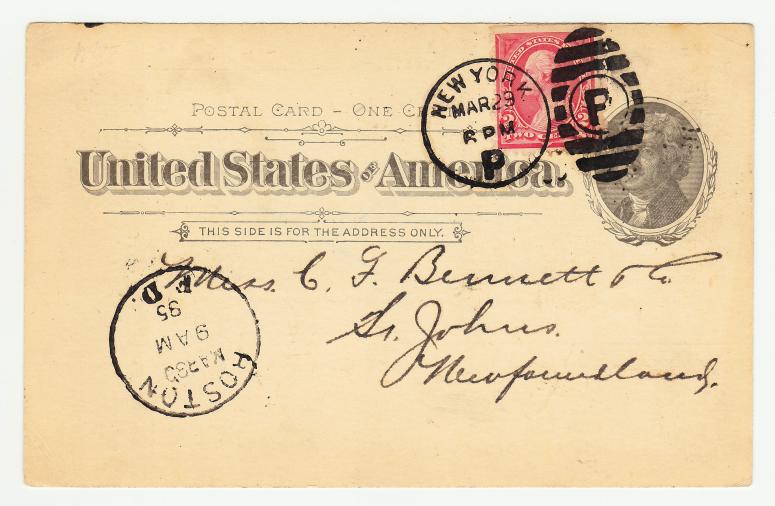 POSTAL CARD – ONE CE
United States of America.
THIS SIDE IS FOR THE ADDRESS ONLY.
NEW YORK
MAR 29
PM
P
P
UNITED STATES
TWO
Mess. C. F. Bennett & Co.
St. Johns.
Newfoundland.
BOSTON
MAR 30
9 AM
95
F.D